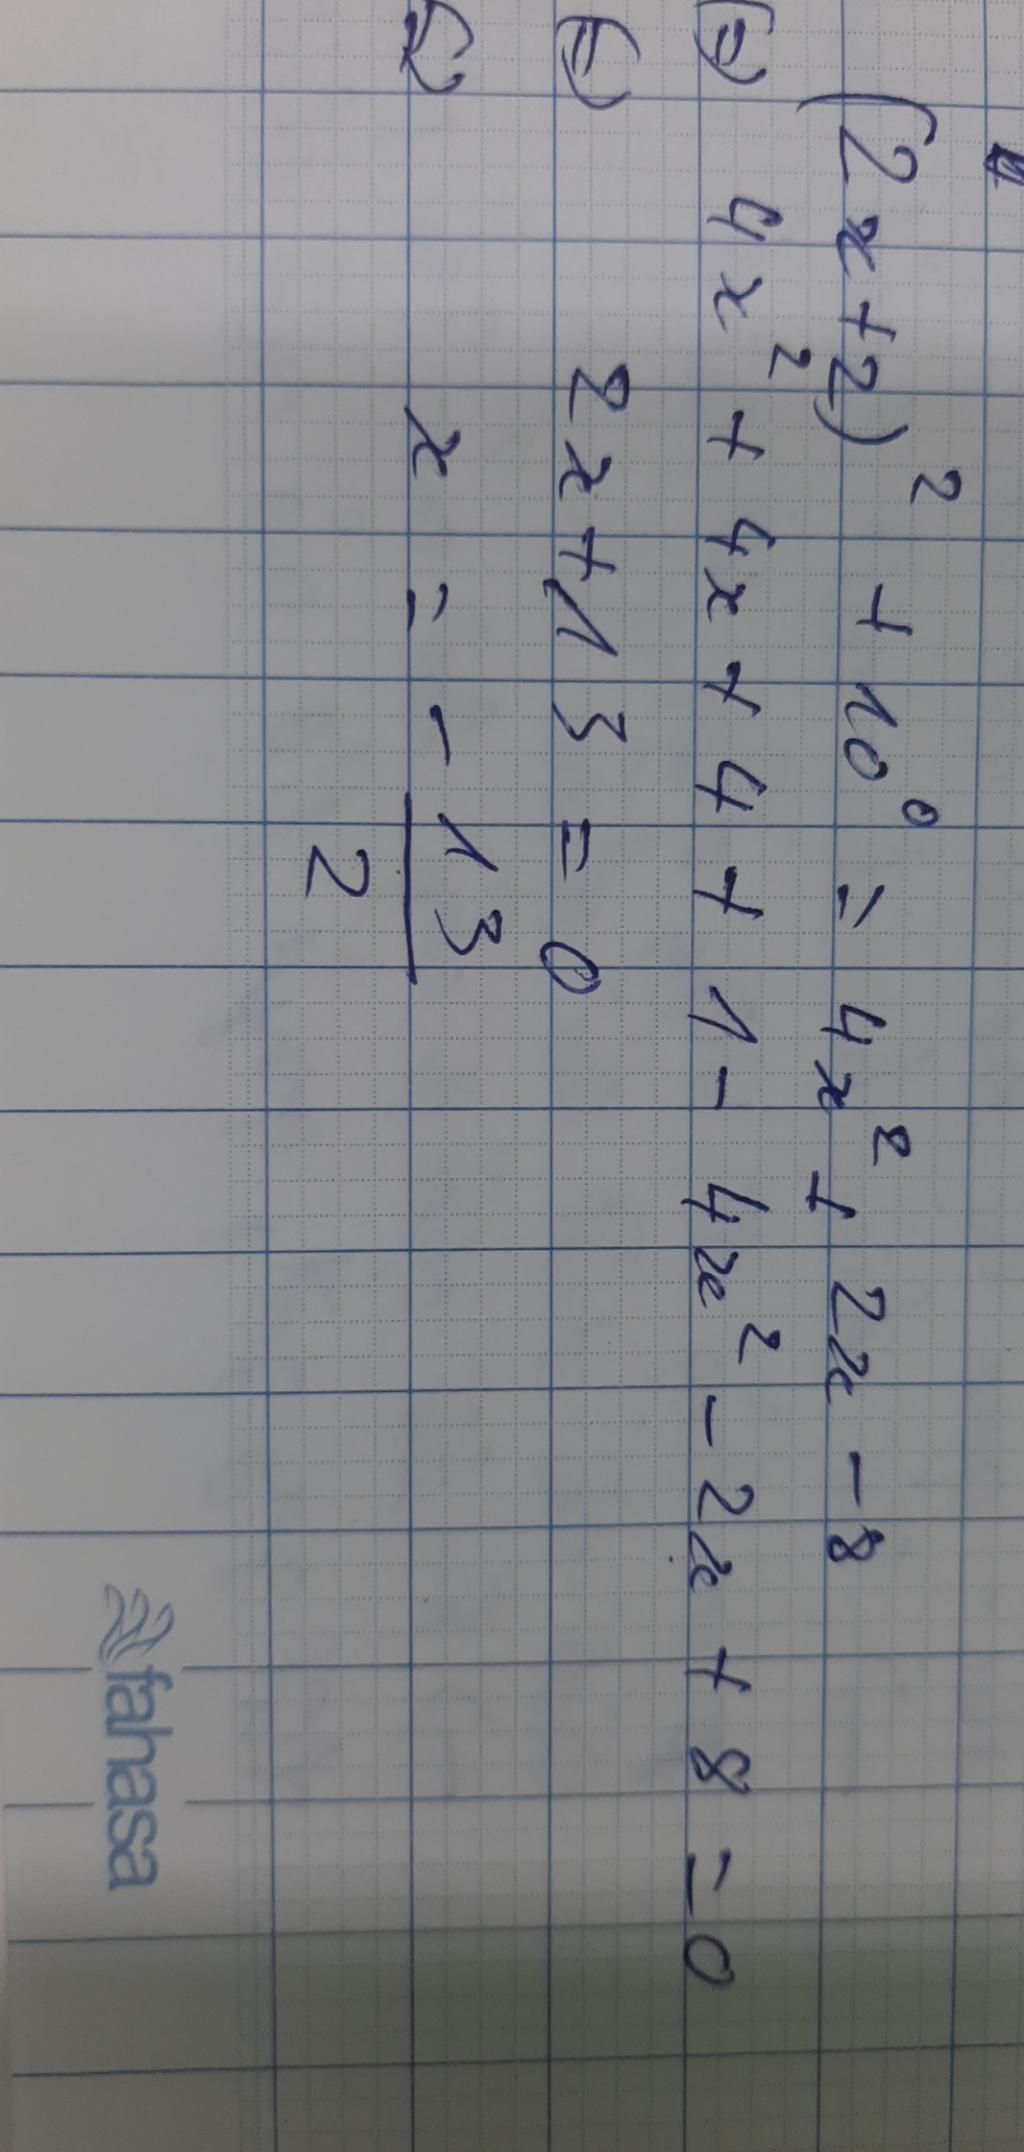 (2x+2)² + 10⁰ = 4x² + 2x - 8
⇔ 4x² + 4x + 4 + 1 - 4x² - 2x + 8 = 0
⇔ 2x + 13 = 0
⇔ x = -13/2
fahasa